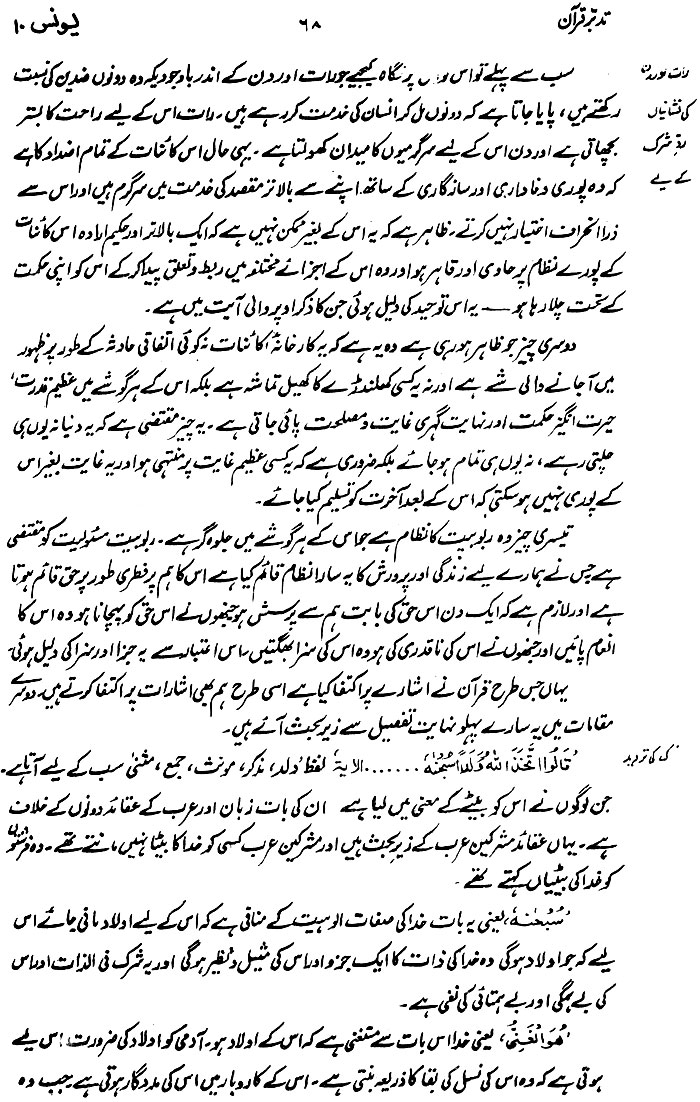 تدبرِ قرآن ۶۸ یونس ۱۰
رات اور دن
کی نشانیاں
ردِّ شرک
کے لیے
سب سے پہلے تو اس پر نگاہ کیجیے جو رات اور دن کے اندر باوجودیکہ وہ دونوں ضدین کی نسبت
رکھتے ہیں، پایا جاتا ہے کہ دونوں مل کر انسان کی خدمت کر رہے ہیں۔ رات اس کے لیے راحت کا بستر
بچھاتی ہے اور دن اس کے لیے سرگرمیوں کا میدان کھولتا ہے۔ یہی حال اس کائنات کے تمام اضداد کا ہے
کہ وہ پوری وفاداری اور سازگاری کے ساتھ اپنے سے بالاتر مقصد کی خدمت میں سرگرم ہیں اور اس سے
ذرا انحراف اختیار نہیں کرتے۔ ظاہر ہے کہ یہ اس کے بغیر ممکن نہیں ہے کہ ایک بالاتر اور حکیم ارادہ اس کائنات
کے پورے نظام پر حاوی اور قاہر ہو اور وہ اس کے اجزائے مختلفہ میں ربط و تعلق پیدا کر کے اس کو اپنی حکمت
کے تحت چلا رہا ہو —— یہ اس توحید کی دلیل ہوئی جن کا ذکر اوپر والی آیت میں ہے۔
دوسری چیز جو ظاہر ہو رہی ہے وہ یہ ہے کہ یہ کارخانۂ کائنات نہ کوئی اتفاقی حادثہ کے طور پر ظہور
میں آ جانے والی شے ہے اور نہ یہ کسی کھلنڈرے کا کھیل تماشہ ہے بلکہ اس کے ہر گوشے میں عظیم قدرت،
حیرت انگیز حکمت اور نہایت گہری غایت و مصلحت پائی جاتی ہے۔ یہ چیز مقتضی ہے کہ یہ دنیا نہ یوں ہی
چلتی رہے، نہ یوں ہی تمام ہو جائے بلکہ ضروری ہے کہ یہ کسی عظیم غایت پر منتہی ہو اور یہ غایت بغیر اس
کے پوری نہیں ہو سکتی کہ اس کے بعد آخرت کو تسلیم کیا جائے۔
تیسری چیز وہ ربوبیت کا نظام ہے جو اس کے ہر گوشے میں جلوہ گر ہے۔ ربوبیت مسئولیت کو مقتضی
ہے جس نے ہمارے لیے زندگی اور پرورش کا یہ سارا نظام قائم کیا ہے اس کا ہم پر فطری طور پر حق قائم ہوتا
ہے اور لازم ہے کہ ایک دن اس حق کی بابت ہم سے پرسش ہو جنھوں نے اس حق کو پہچانا ہو وہ اس کا
انعام پائیں اور جنھوں نے اس کی ناقدری کی ہو وہ اس کی سزا بھگتیں۔ اس اعتبار سے یہ جزا اور سزا کی دلیل ہوئی۔
یہاں جس طرح قرآن نے اشارے پر اکتفا کیا ہے اسی طرح ہم بھی اشارات پر اکتفا کرتے ہیں۔ دوسرے
مقامات میں یہ سارے پہلو نہایت تفصیل سے زیر بحث آئے ہیں۔
ک کی تردید
'قَالُوا اتَّخَذَ اللّٰهُ وَلَدًا سُبْحٰنَهٗ ....... الاٰیة' لفظ 'ولد' مذکر، مونث، جمع، مثنیٰ سب کے لیے آتا ہے۔
جن لوگوں نے اس کو بیٹے کے معنی میں لیا ہے ان کی بات زبان اور عرب کے عقائد دونوں کے خلاف
ہے۔ یہاں عقائد مشرکین عرب کے زیر بحث ہیں اور مشرکین عرب کسی کو خدا کا بیٹا نہیں مانتے تھے۔ وہ فرشتوں
کو خدا کی بیٹیاں کہتے تھے۔
'سُبْحٰنَهٗ' یعنی یہ بات خدا کی صفات الوہیت کے منافی ہے کہ اس کے لیے اولاد مانی جائے اس
لیے کہ جو اولاد ہو گی وہ خدا کی ذات کا ایک جزو اور اس کی مثیل و نظیر ہو گی اور یہ شرک فی الذات اور اس
کی بے ہمگی اور بے ہمتائی کی نفی ہے۔
'هُوَ الْغَنِیُّ' یعنی خدا اس بات سے مستغنی ہے کہ اس کے اولاد ہو۔ آدمی کو اولاد کی ضرورت اس لیے
ہوتی ہے کہ وہ اس کی نسل کی بقا کا ذریعہ بنتی ہے۔ اس کے کاروبار میں اس کی مددگار ہوتی ہے جب وہ